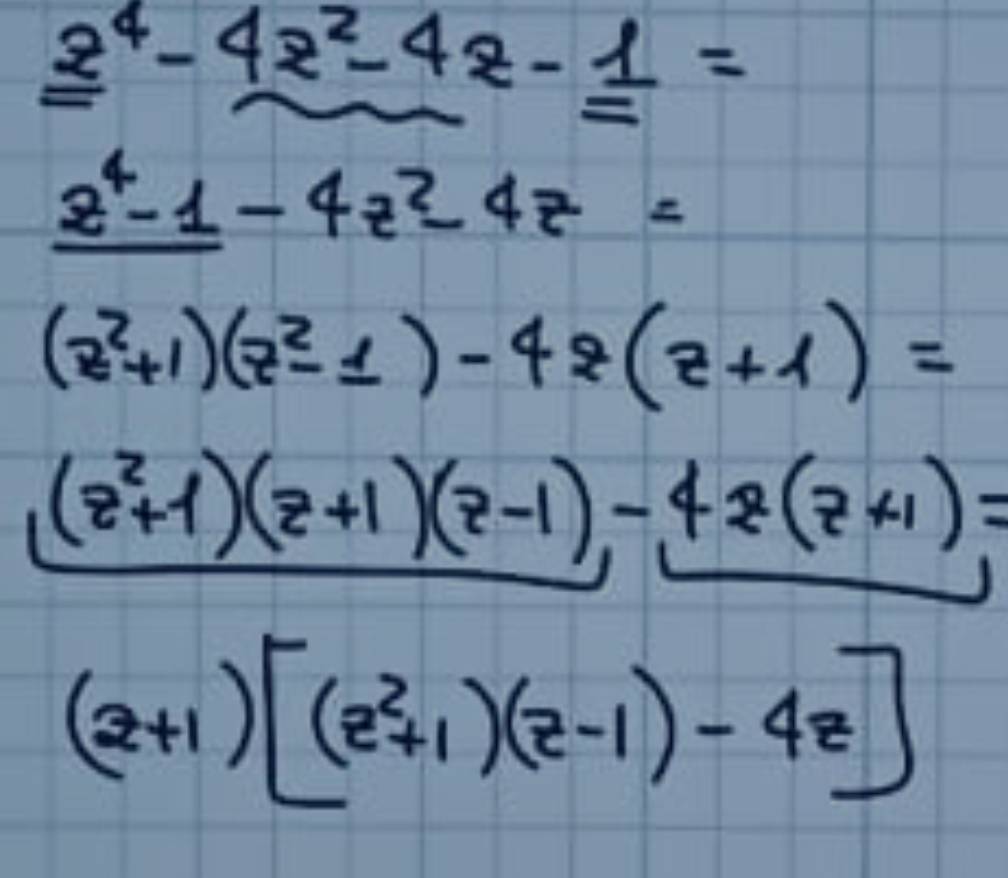 z⁴ - 4z² - 4z - 1 =
z⁴ - 1 - 4z² - 4z =
(z²+1)(z²-1) - 4z(z+1) =
(z²+1)(z+1)(z-1) - 4z(z+1) =
(z+1)[(z²+1)(z-1) - 4z]